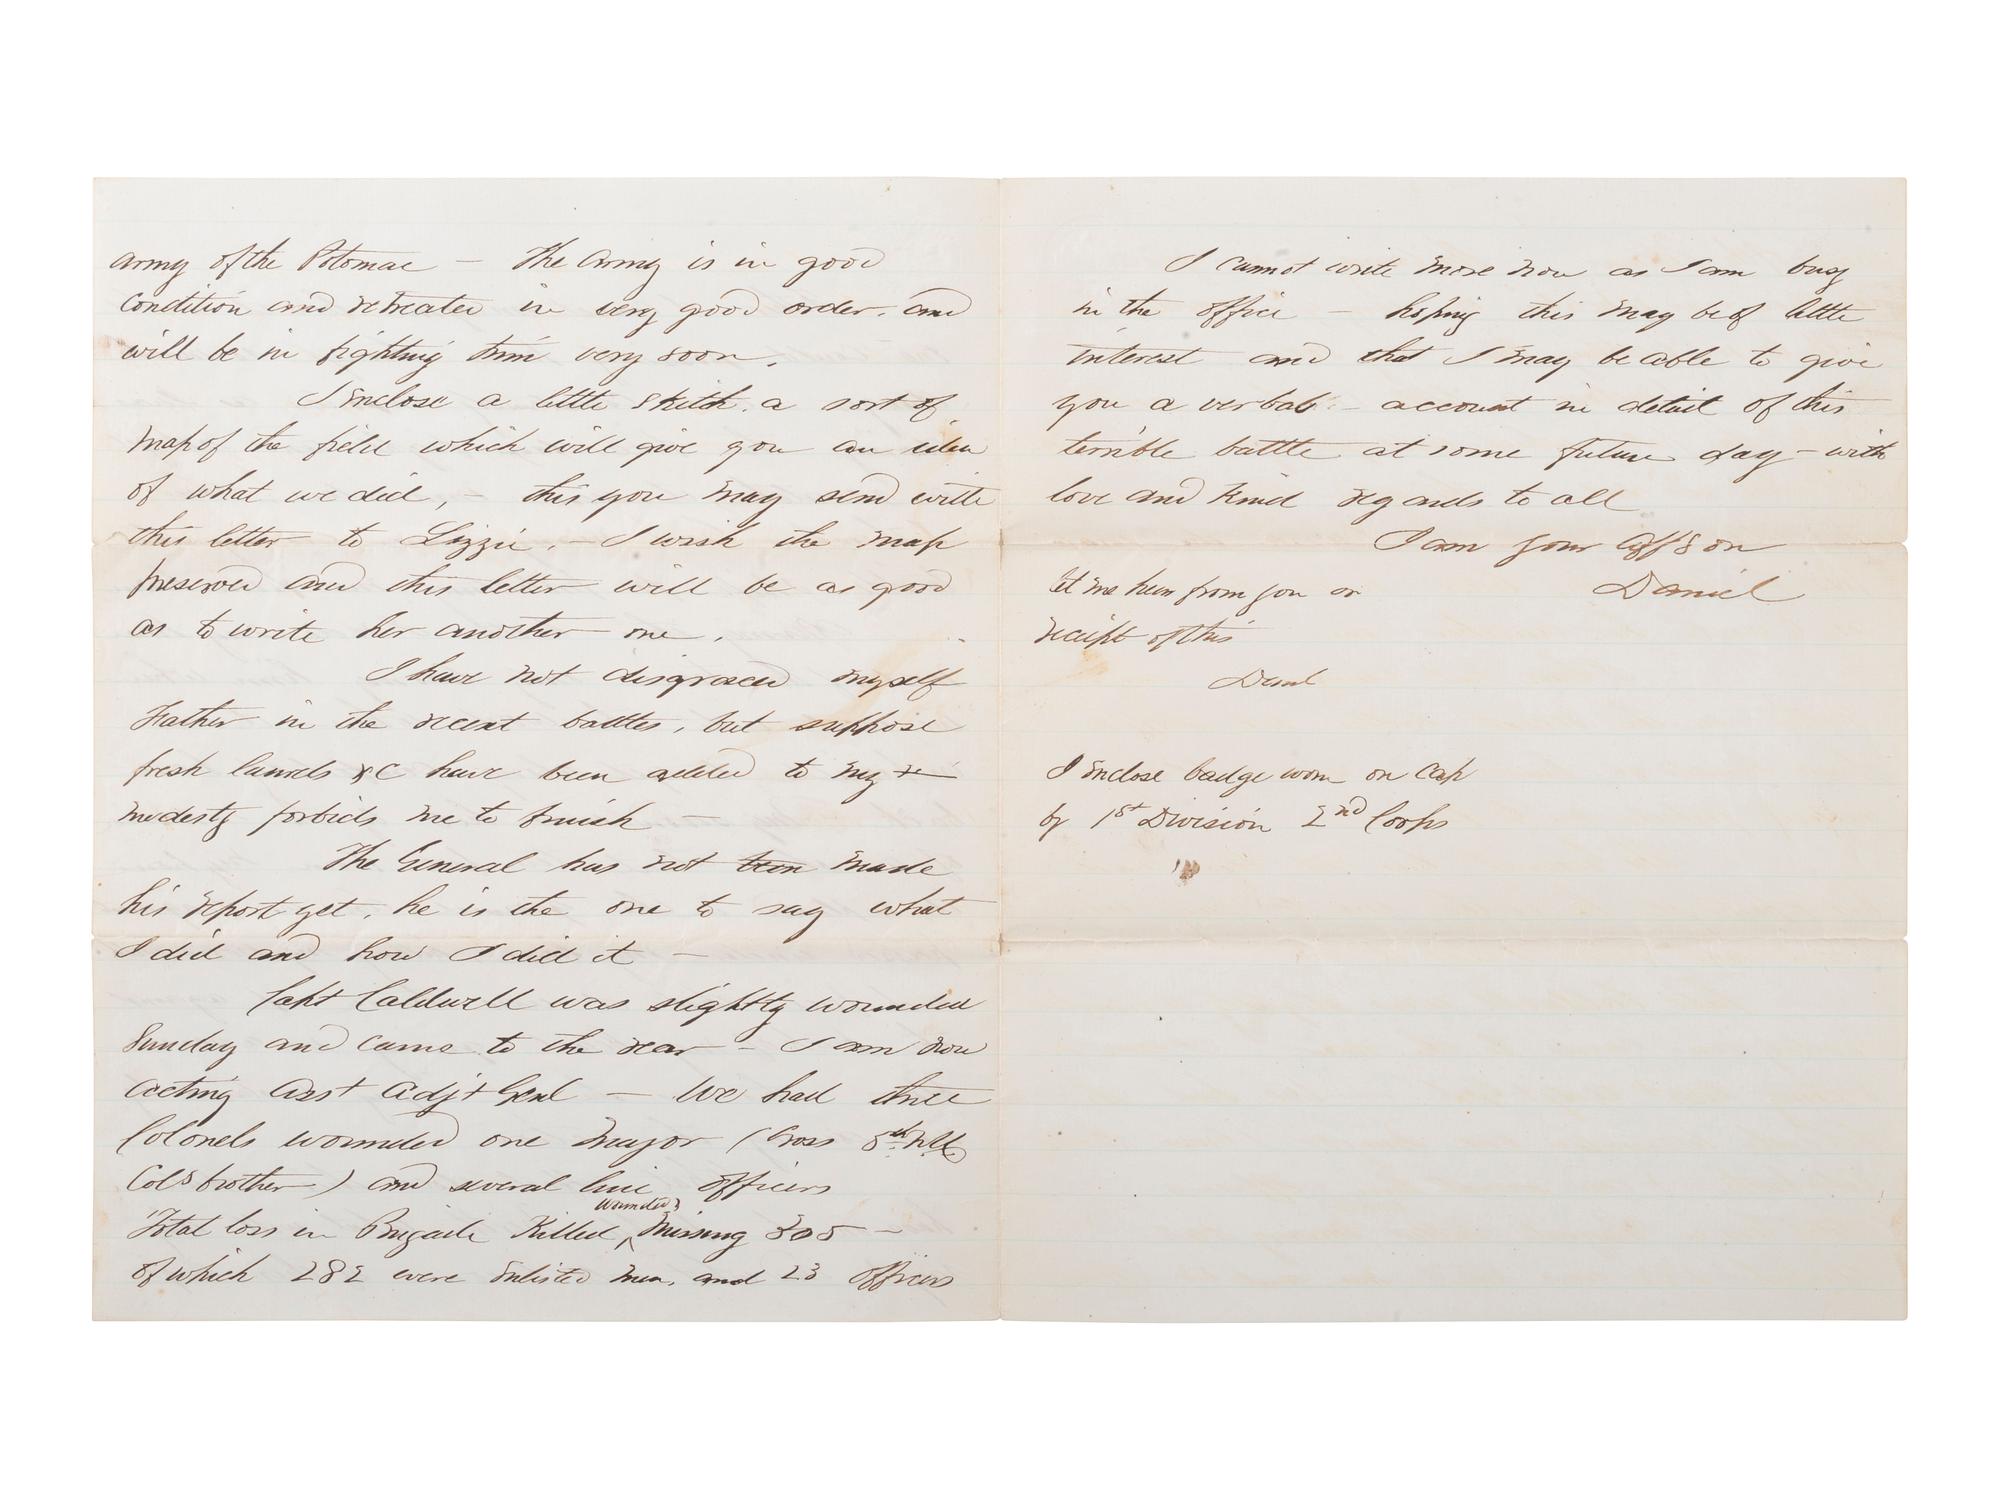 army of the Potomac — The Army is in good
condition and retreated in very good order. and
will be in fighting trim very soon.
I Enclose a little sketch. a sort of
map of the field which will give you an idea
of what we did, — this you may send with
this letter to Lizzie. — I wish the map
preserved and this letter will be as good
as to write her another one.
I have not disgraced myself
Father in the recent battles, but suppose
fresh laurels &C have been added to my
modesty forbids me to finish —
The General has not been made
his report yet. he is the one to say what
I did and how I did it —
Capt Caldwell was slightly wounded
Sunday and came to the rear — I am now
acting Asst Adjt Genl — We had three
Colonels wounded one Major (Cross 5th N.H.
Cols brother) and several line officers
wounded &
Total loss in Brigade Killed, Missing 305 —
of which 282 were Enlisted men. and 23 officers
I cannot write more now as I am busy
in the office — hoping this may be of little
interest and that I may be able to give
you a verbal — account in detail of this
terrible battle at some future day — with
love and Kind regards to all
I am your aff son
Daniel
let me hear from you on
receipt of this
Danl
I Enclose badge worn on Cap
by 1st Division 2nd Corps